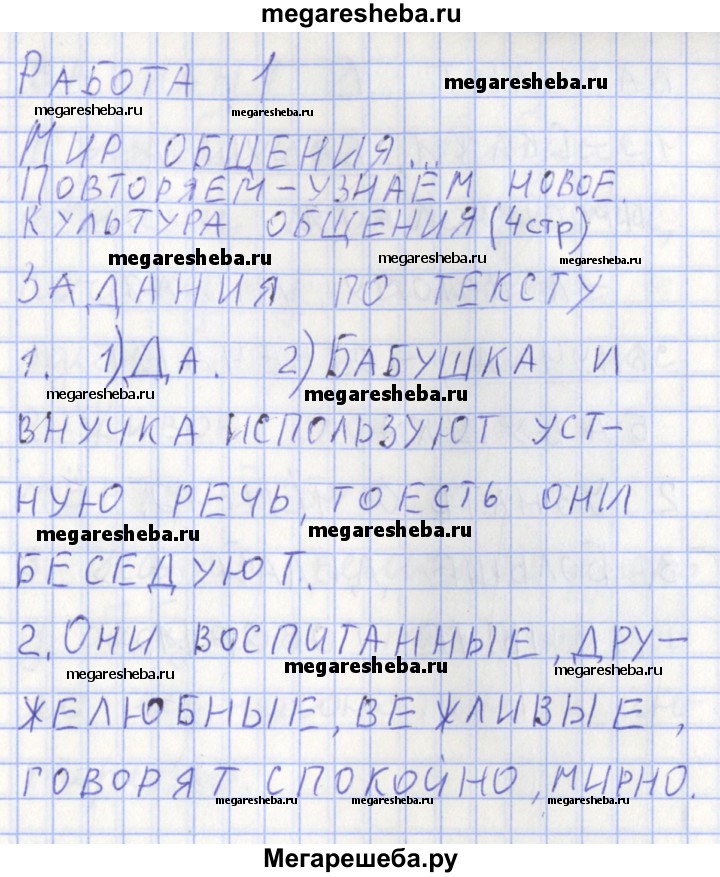 megaresheba.ru
РАБОТА 1
megaresheba.ru
megaresheba.ru megaresheba.ru
МИР ОБЩЕНИЯ...
ПОВТОРЯЕМ-УЗНАЁМ НОВОЕ.
КУЛЬТУРА ОБЩЕНИЯ (4стр)
megaresheba.ru megaresheba.ru megaresheba.ru
ЗАДАНИЯ ПО ТЕКСТУ
1. 1) ДА. 2) БАБУШКА И
megaresheba.ru megaresheba.ru
ВНУЧКА ИСПОЛЬЗУЮТ УСТ-
НУЮ РЕЧЬ, ТОЕСТЬ ОНИ
megaresheba.ru megaresheba.ru
БЕСЕДУЮТ.
2. ОНИ ВОСПИТАННЫЕ, ДРУ-
megaresheba.ru megaresheba.ru megaresheba.ru
ЖЕЛЮБНЫЕ, ВЕЖЛИВЫЕ,
ГОВОРЯТ СПОКОЙНО, МИРНО.
megaresheba.ru megaresheba.ru megaresheba.ru
Мегарешеба.ру